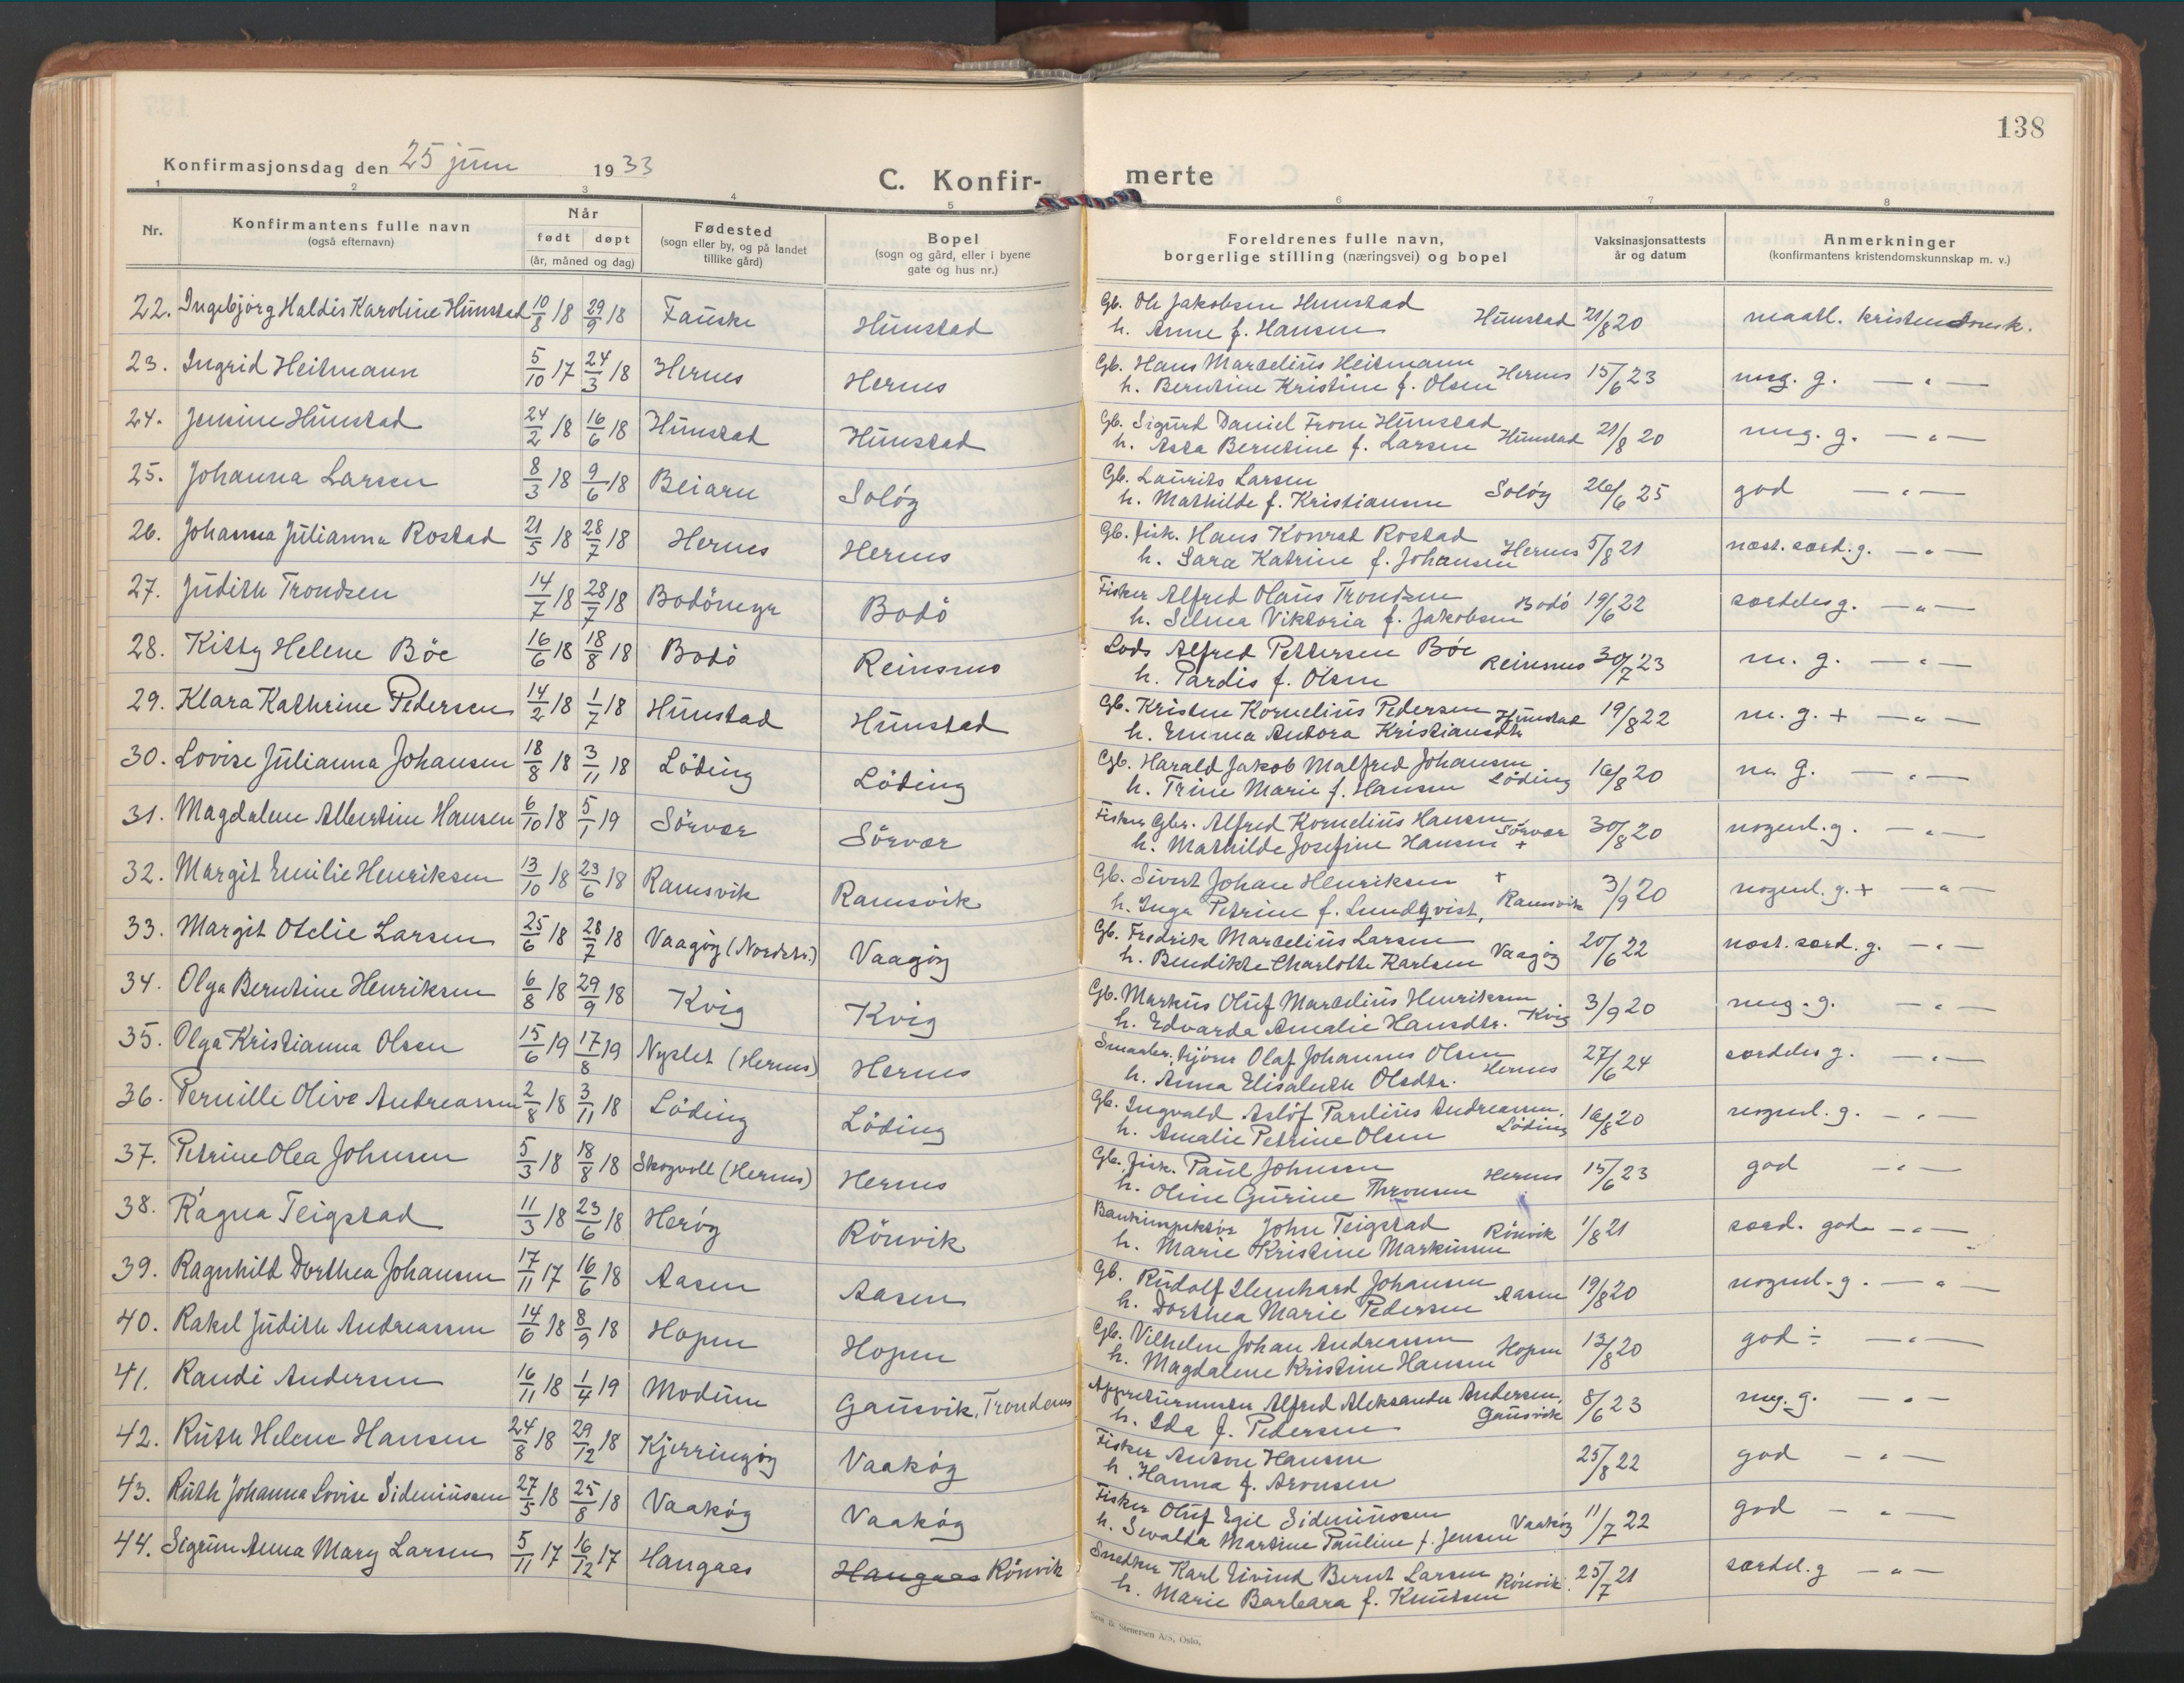 138
Konfirmasjonsdag den 25 juni 1933
C. Konfir- merte
1 2 3 4 5 6 7 8
Nr.
Konfirmantens fulle navn
(også efternavn)
Når
født døpt
(år, måned og dag)
Fødested
(sogn eller by, og på landet
tillike gård)
Bopel
(sogn og gård, eller i byene
gate og hus nr.)
Foreldrenes fulle navn,
borgerlige stilling (næringsvei) og bopel
Vaksinasjonsattests
år og datum
Anmerkninger
(konfirmantens kristendomskunnskap m. v.)
22. Ingebjörg Haldis Karoline Hunstad 10/8 18 29/9 18 Fauske Hunstad Gb. Ole Jakobsen Hunstad
h. Anne f. Hansen Hunstad 21/8 20 maatl. kristendomsk.
23. Ingrid Heitmann 5/10 17 24/3 18 Hernes Hernes Gb. Hans Marselius Heitmann
h. Berntine Kristine f. Olsen Hernes 15/6 23 meg. g. — " —
24. Jensine Hunstad 24/2 18 16/6 18 Hunstad Hunstad Gb. Sigurd Daniel From Hunstad
h. Asta Berntine f. Larsen Hunstad 21/8 20 meg. g. — " —
25. Johanna Larsen 8/3 18 9/6 18 Beiarn Solöy Gb. Laurits Larsen
h. Mathilde f. Kristiansen Solöy 26/6 25 god — " —
26. Johanna Julianna Rostad 21/5 18 28/7 18 Hernes Hernes Gb. fisk. Hans Konrad Rostad
h. Sara Katrine f. Johansen Hernes 5/8 21 næst. særd. g. — " —
27. Judith Trondsen 14/7 18 28/7 18 Bodömyr Bodö Fisker Alfred Olaus Trondsen
h. Selma Viktoria f. Jakobsen Bodö 19/6 22 særdeles g. — " —
28. Kitty Helene Böe 16/6 18 18/8 18 Bodö Reinsmo Lods Alfred Pettersen Böe
h. Pardis f. Olsen Reinsmo 30/7 23 m. g. — " —
29. Klara Kathrine Pedersen 14/2 18 1/7 18 Hunstad Hunstad Gb. Kristen Kornelius Pedersen
h. Emma Antora Kristiansdtr Hunstad 19/8 22 m. g. + — " —
30. Lovise Julianna Johansen 18/8 18 3/11 18 Löding Löding Gb. Harald Jakob Malfred Johansen
h. Trine Marie f. Hansen Löding 16/8 20 m g. — " —
31. Magdalene Albertine Hansen 6/10 18 5/1 19 Sörvær Sörvær Fisker Gbr. Alfred Kornelius Hansen
h. Mathilde Josefine Hansen + Sörvær 30/8 20 nogenl. g. — " —
32. Margit Emilie Henriksen 13/10 18 23/6 18 Ramsvik Ramsvik Gb. Sivert Johan Henriksen +
h. Inga Petrine f. Lundqvist, Ramsvik 3/9 20 nogenl. g. + — " —
33. Margit Otelie Larsen 25/6 18 28/7 18 Vaagöy (Nordstr.) Vaagöy Gb. Fredrik Marselius Larsen
h. Bendikte Charlotte Karlsen Vaagöy 20/6 22 næst. særd. g. — " —
34. Olga Berntine Henriksen 6/8 18 29/9 18 Kvig Kvig Gb. Markus Oluf Marselius Henriksen
h. Edvarda Amalie Hansdtr. Kvig 3/9 20 meg. g. — " —
35. Olga Kristianna Olsen 15/6 19 17/8 19 Nyslet (Hernes) Hernes Smaabr. Björn Olaf Johannes Olsen
h. Anna Elisabeth Olsdtr. Hernes 27/6 24 særdeles g. — " —
36. Pernille Olive Andreassen 2/8 18 3/11 18 Löding Löding Gb. Ingvald Aslöf Paulius Andreassen.
h. Amalie Petrine Olsen Löding 16/8 20 nogenl. g. — " —
37. Petrine Olea Johnsen 5/3 18 18/8 18 Skogvoll (Hernes) Hernes Gb. fisk. Paul Johnsen
h. Oline Gurine Thronsen Hernes 15/6 23 god — " —
38. Ragna Teigstad 11/3 18 23/6 18 Heröy Rönvik Bankinspektör John Teigstad
h. Marie Kristine Markussen Rönvik 1/8 21 særd. god — " —
39. Ragnhild Dorthea Johansen 17/11 17 16/6 18 Aasen Aasen Gb. Rudolf Lienhard Johansen
h. Dorthea Marie Pedersen Aasen 19/8 20 nogenl. g. — " —
40. Rakel Judith Andreassen 14/6 18 8/9 18 Hopen Hopen Gb. Vilhelm Johan Andreassen
h. Magdalene Kristine Hansen Hopen 13/8 20 god ÷ — " —
41. Randi Andersen 16/11 18 1/4 19 Modum Gausvik, Trondenes Appreturmester Alfred Aleksander Andersen,
h. Ida f. Pedersen Gausvik 8/6 23 meg. g. — " —
42. Ruth Helene Hansen 24/8 18 29/12 18 Kjerringöy Vaaköy Fisker Anton Hansen
h. Hanna f. Aronsen 25/8 22 god — " —
43. Ruth Johanna Lovise Sideniussen 27/5 18 25/8 18 Vaaköy Vaaköy Fisker Oluf Egil Sideniussen
h. Sevalda Martine Pauline f. Jensen Vaaköy 11/7 22 god — " —
44. Sigrun Anna Mary Larsen 5/11 17 16/12 17 Haugaas Haugaas Rönvik Snedker Karl Eivind Bernt Larsen
h. Marie Barbara f. Knutsen Rönvik. 25/7 21 særdel. g — " —
Sem & Stenersen A/S, Oslo.